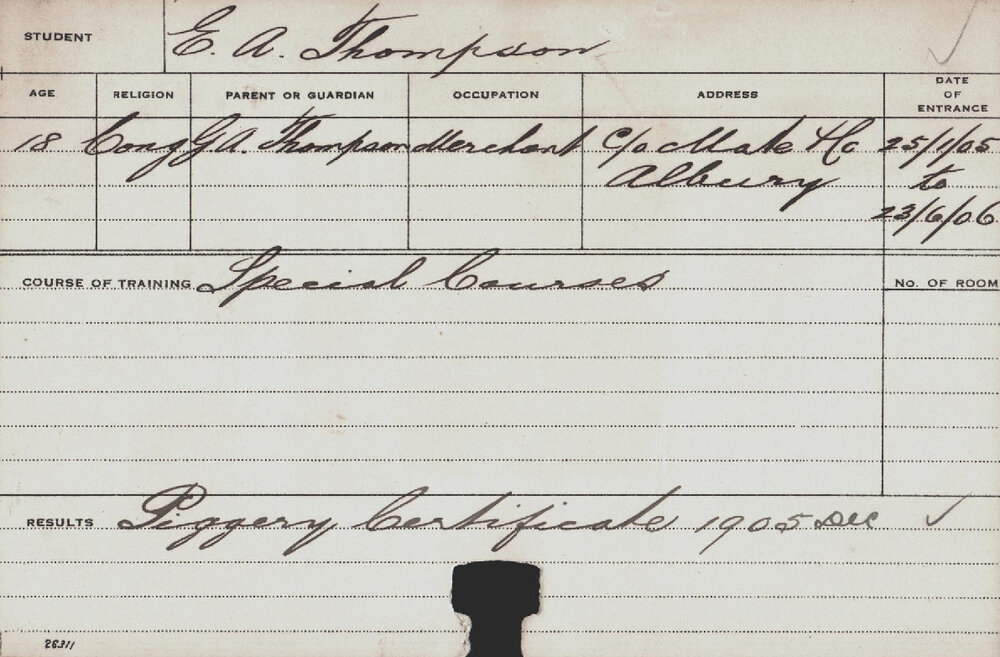 STUDENT E. A. Thompson
AGE RELIGION PARENT OR GUARDIAN OCCUPATION ADDRESS DATE OF ENTRANCE
18 Cong G A. Thompson Merchant C/o Mate & Co 25/1/05
Albury to
23/6/06
COURSE OF TRAINING Special Courses No. OF ROOM
RESULTS Piggery Certificate 1905 Dec ✓
26311